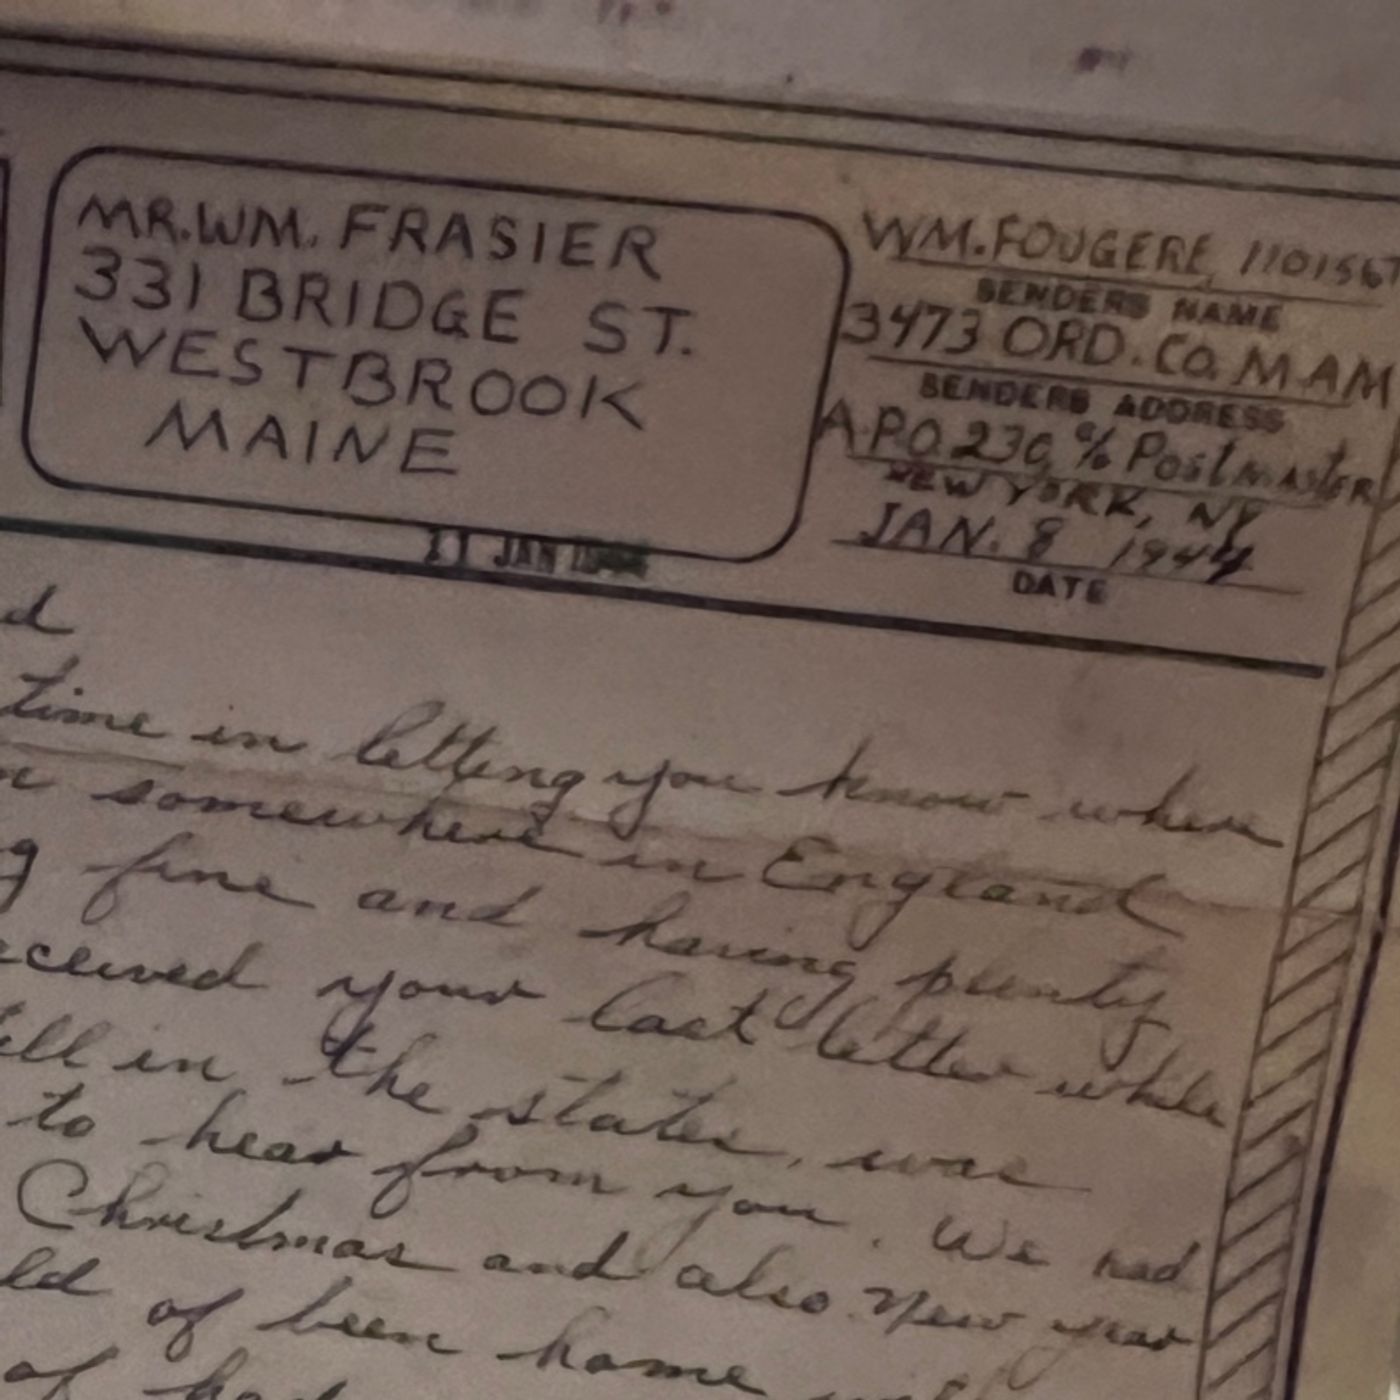 MR. WM. FRASIER
331 BRIDGE ST.
WESTBROOK
MAINE
WM. FOUGERE 1101567
SENDERS NAME
3473 ORD. CO. M.A.M
SENDERS ADDRESS
A.P.O. 230, % POSTMASTER
NEW YORK, NY
JAN. 8 1944
DATE
11 JAN
d
time in letting you know where
somewhere in England
g fine and having plenty
eceived your last letter while
ill in the states, was
to hear from you. We had
Christmas and also New year
ld of been home
of had